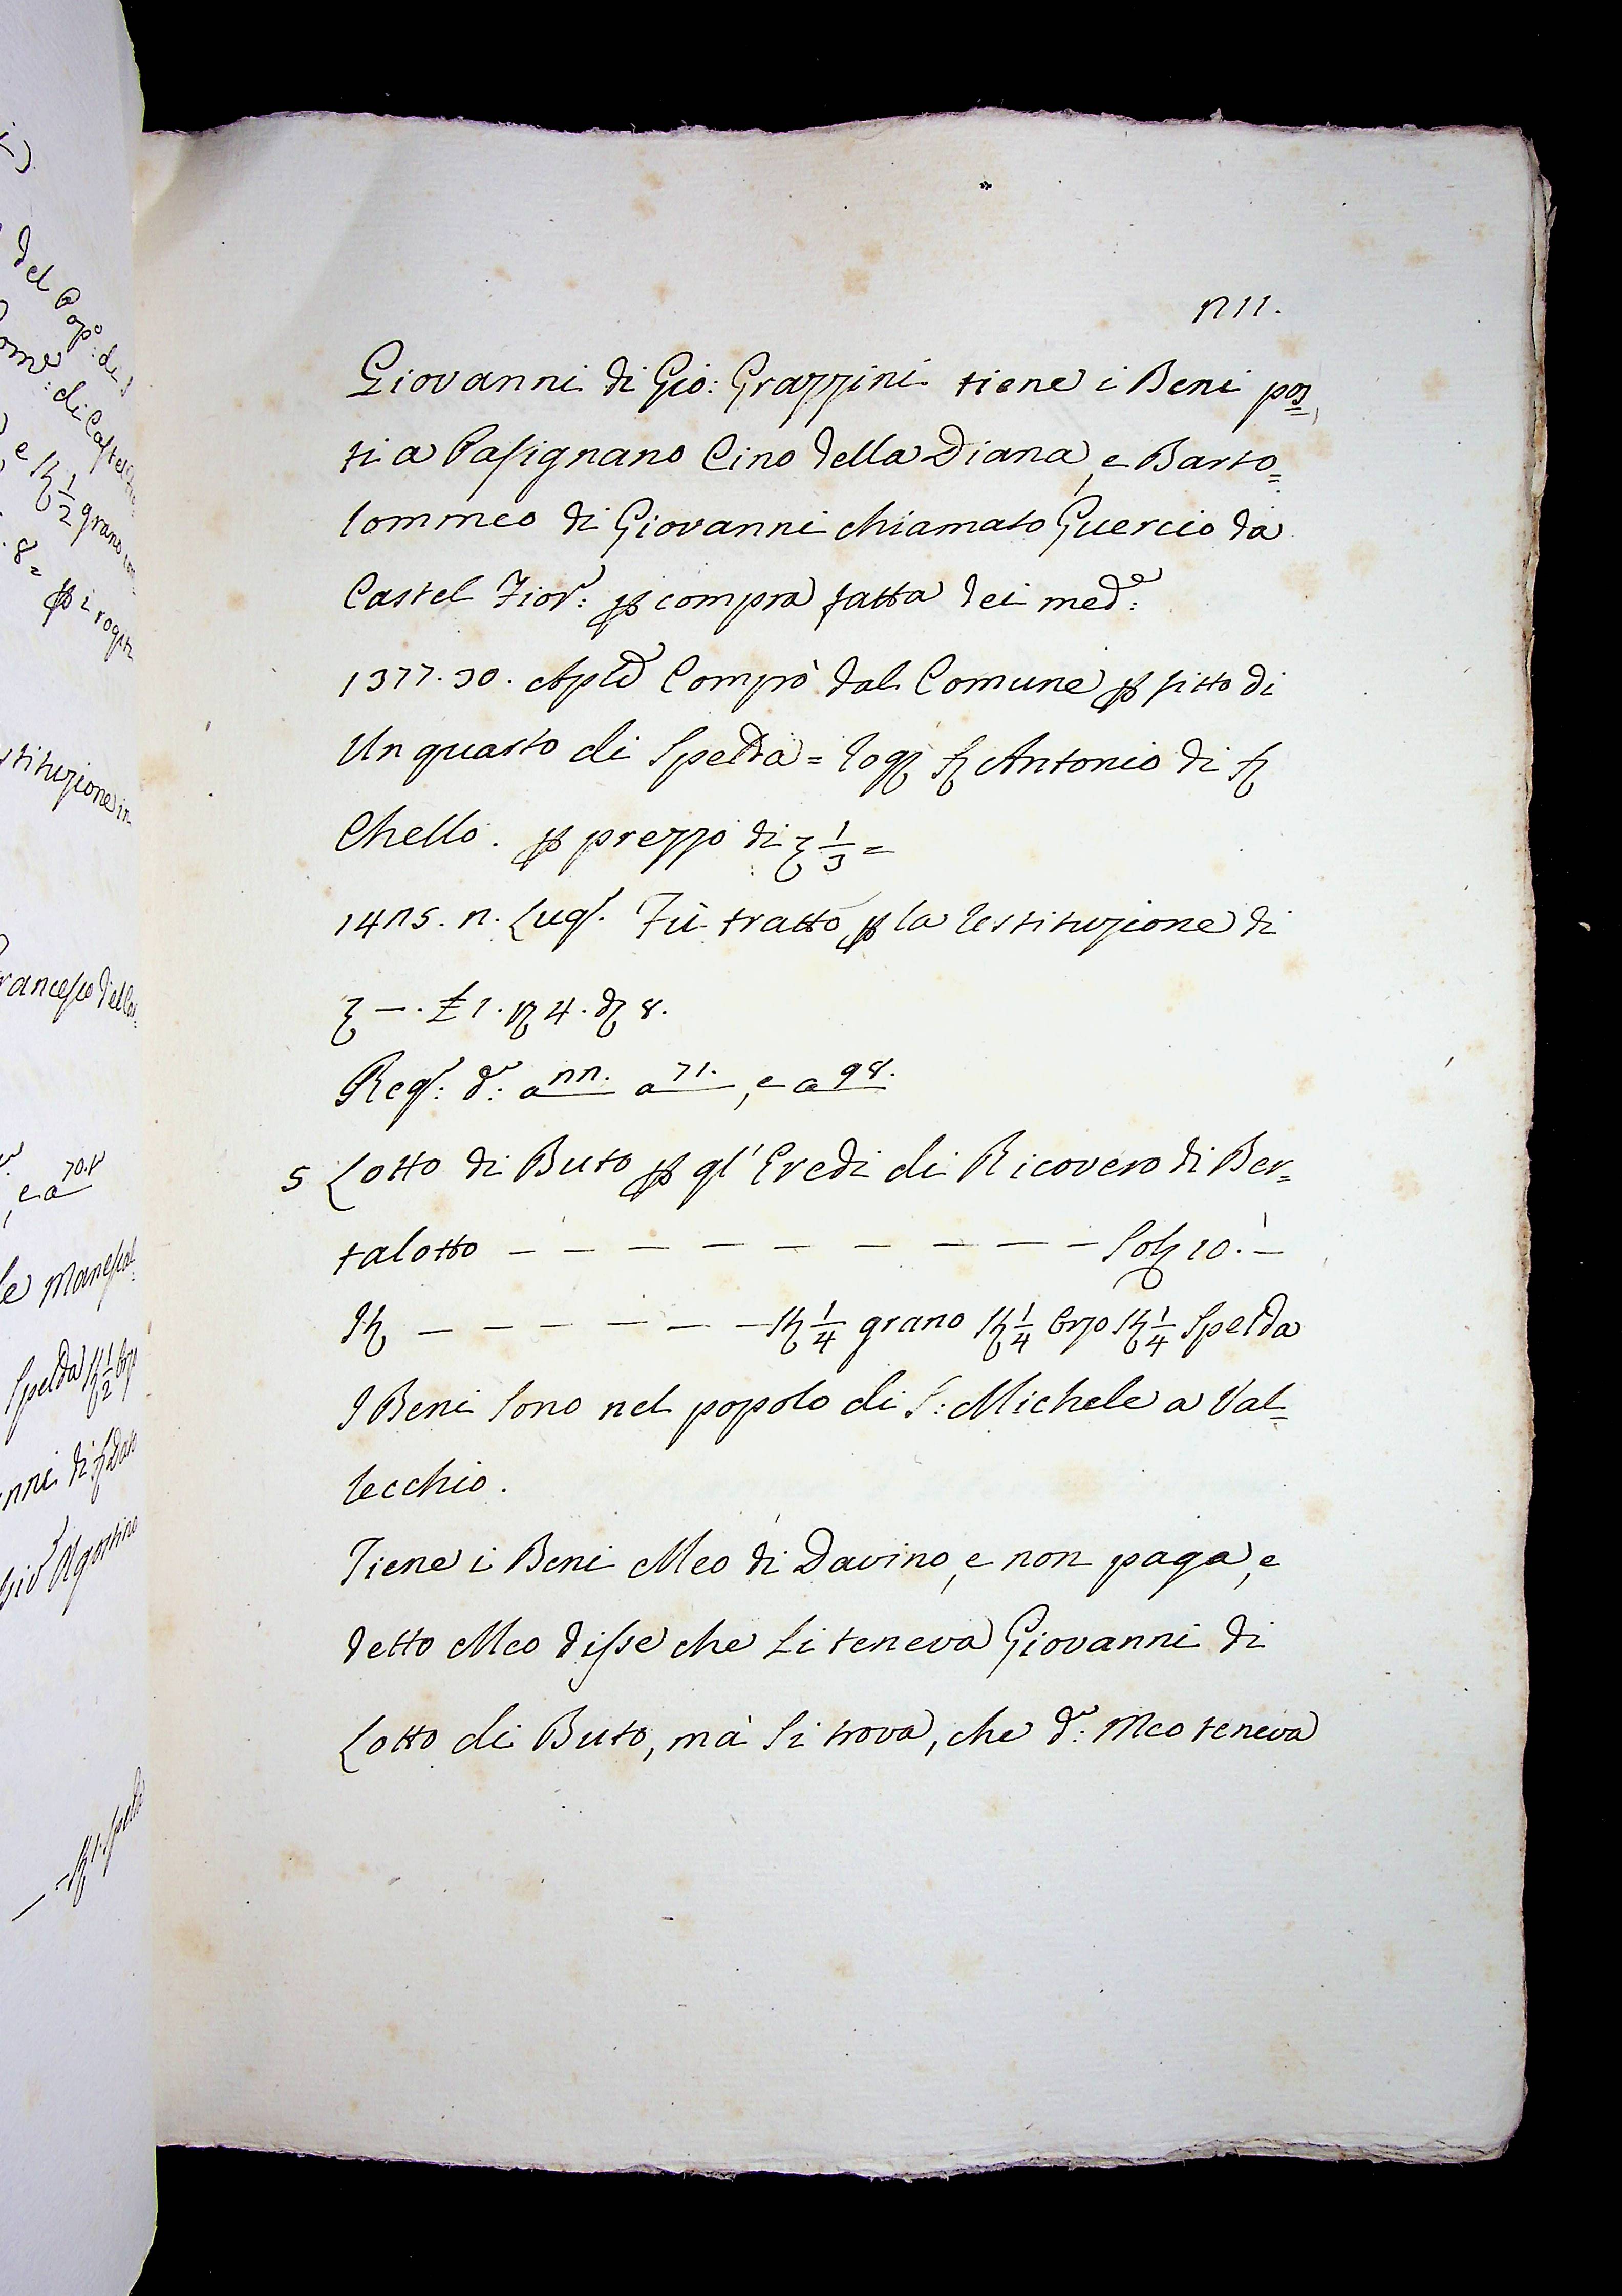 211.
Giovanni di Gio: Grazzini tiene i Beni pos=
ti a Pasignano Cino della Diana, e Barto=
lommeo di Giovanni chiamato Guercio da
Castel Fior.: ꝑ compra fatta dei med.:
1377. 30. Aple Comprò dal Comune ꝑ fitto di
Un quarto di Spelda = Rog. S. Antonio di S.
Chello. ꝑ prezzo di 1/3 =
1425. 2. Lug. Fù tratto ꝑ la restituzione di
— . £ 1. 4. d 8.
Reg.: d.: a 22. a 71., e a 98.
5 Lotto di Buto ꝑ gl' Eredi di Ricovero di Ber=
talotto — — — — — — — — — Sol 10. —
St — — — — — — St 1/4 grano St 1/4 Orzo St 1/4 Spelda
I Beni Sono nel popolo di S: Michele a Val=
lecchio.
Tiene i Beni Meo di Davino, e non paga, e
detto Meo disse che Li teneva Giovanni di
Lotto di Buto, mà Si trova, che d.: Meo teneva